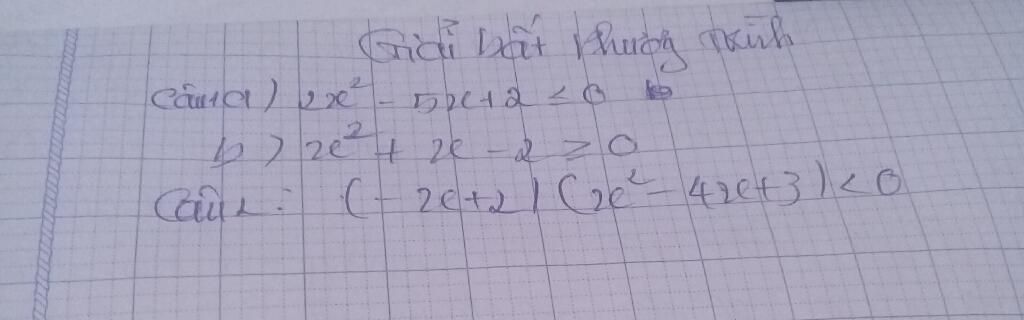 Giải bất phương trình
Câu1a) 2x² - 5x+2 ≤ 0
b) x² + x - 2 ≥ 0
Câu 2: (-x+2)(x² - 4x+3) < 0